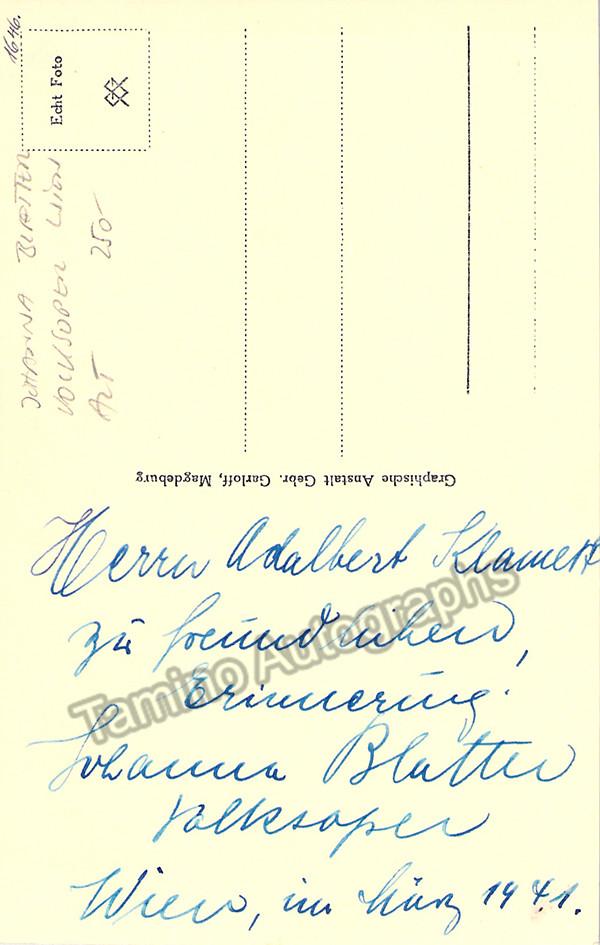 1646.
Echt Foto
JOHANNA BLATTER
VOLKSOPER WIEN
ALT 250-
Graphische Anstalt Gebr. Garloff, Magdeburg
Herrn Adalbert
zu freundlichen,
Erinnerung.
Johanna Blatter
Volksoper
Wien, im März 1941.
Tamino Autographs